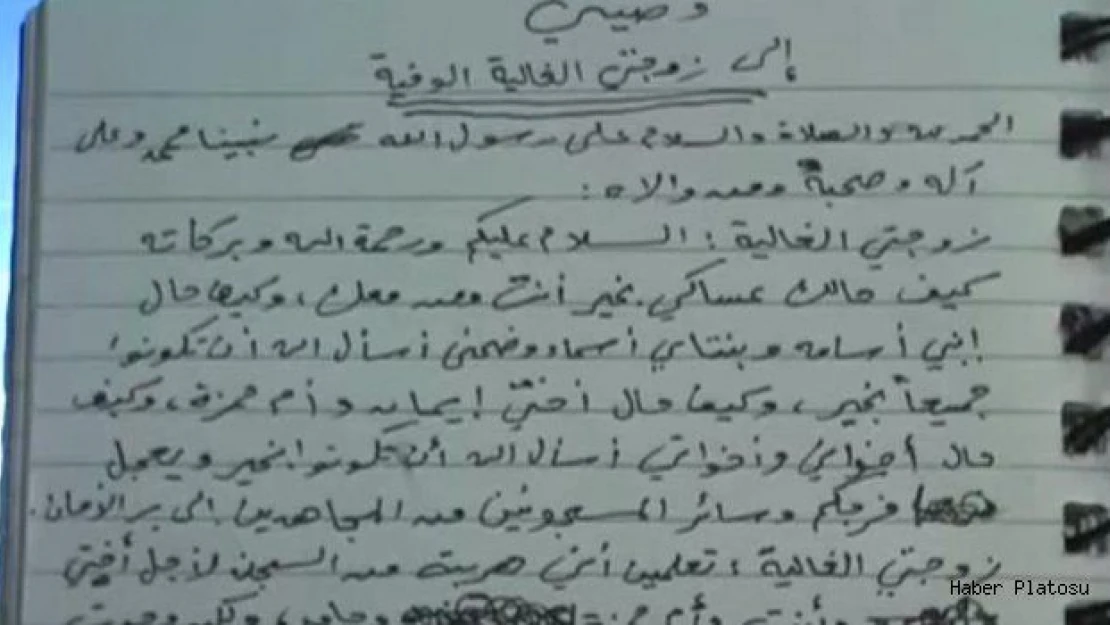 وصيتي
إلى زوجتي الغالية الوفية
الحمد لله والصلاة والسلام على رسول الله نبينا محمد وعلى
آله وصحبه ومن والاه :
زوجتي الغالية : السلام عليكم ورحمة الله وبركاته
كيف حالك عساكي بخير أنت ومن معك ، وكيف حال
إبني أسامه وبنتاي أسماء وضحى أسأل الله أن تكونوا
جميعاً بخير ، وكيف حال أختيّ إيمان وأم حمزة ، وكيف
حال أخواني وأخواتي أسأل الله أن تكونوا بخير ويعجل
فرجكم وسائر المسجونين من المجاهدين إلى بر الأمان .
زوجتي الغالية : تعلمين أني هربت من السجن لأجل أختي
وأنت وأم حمزة
Haber Platosu